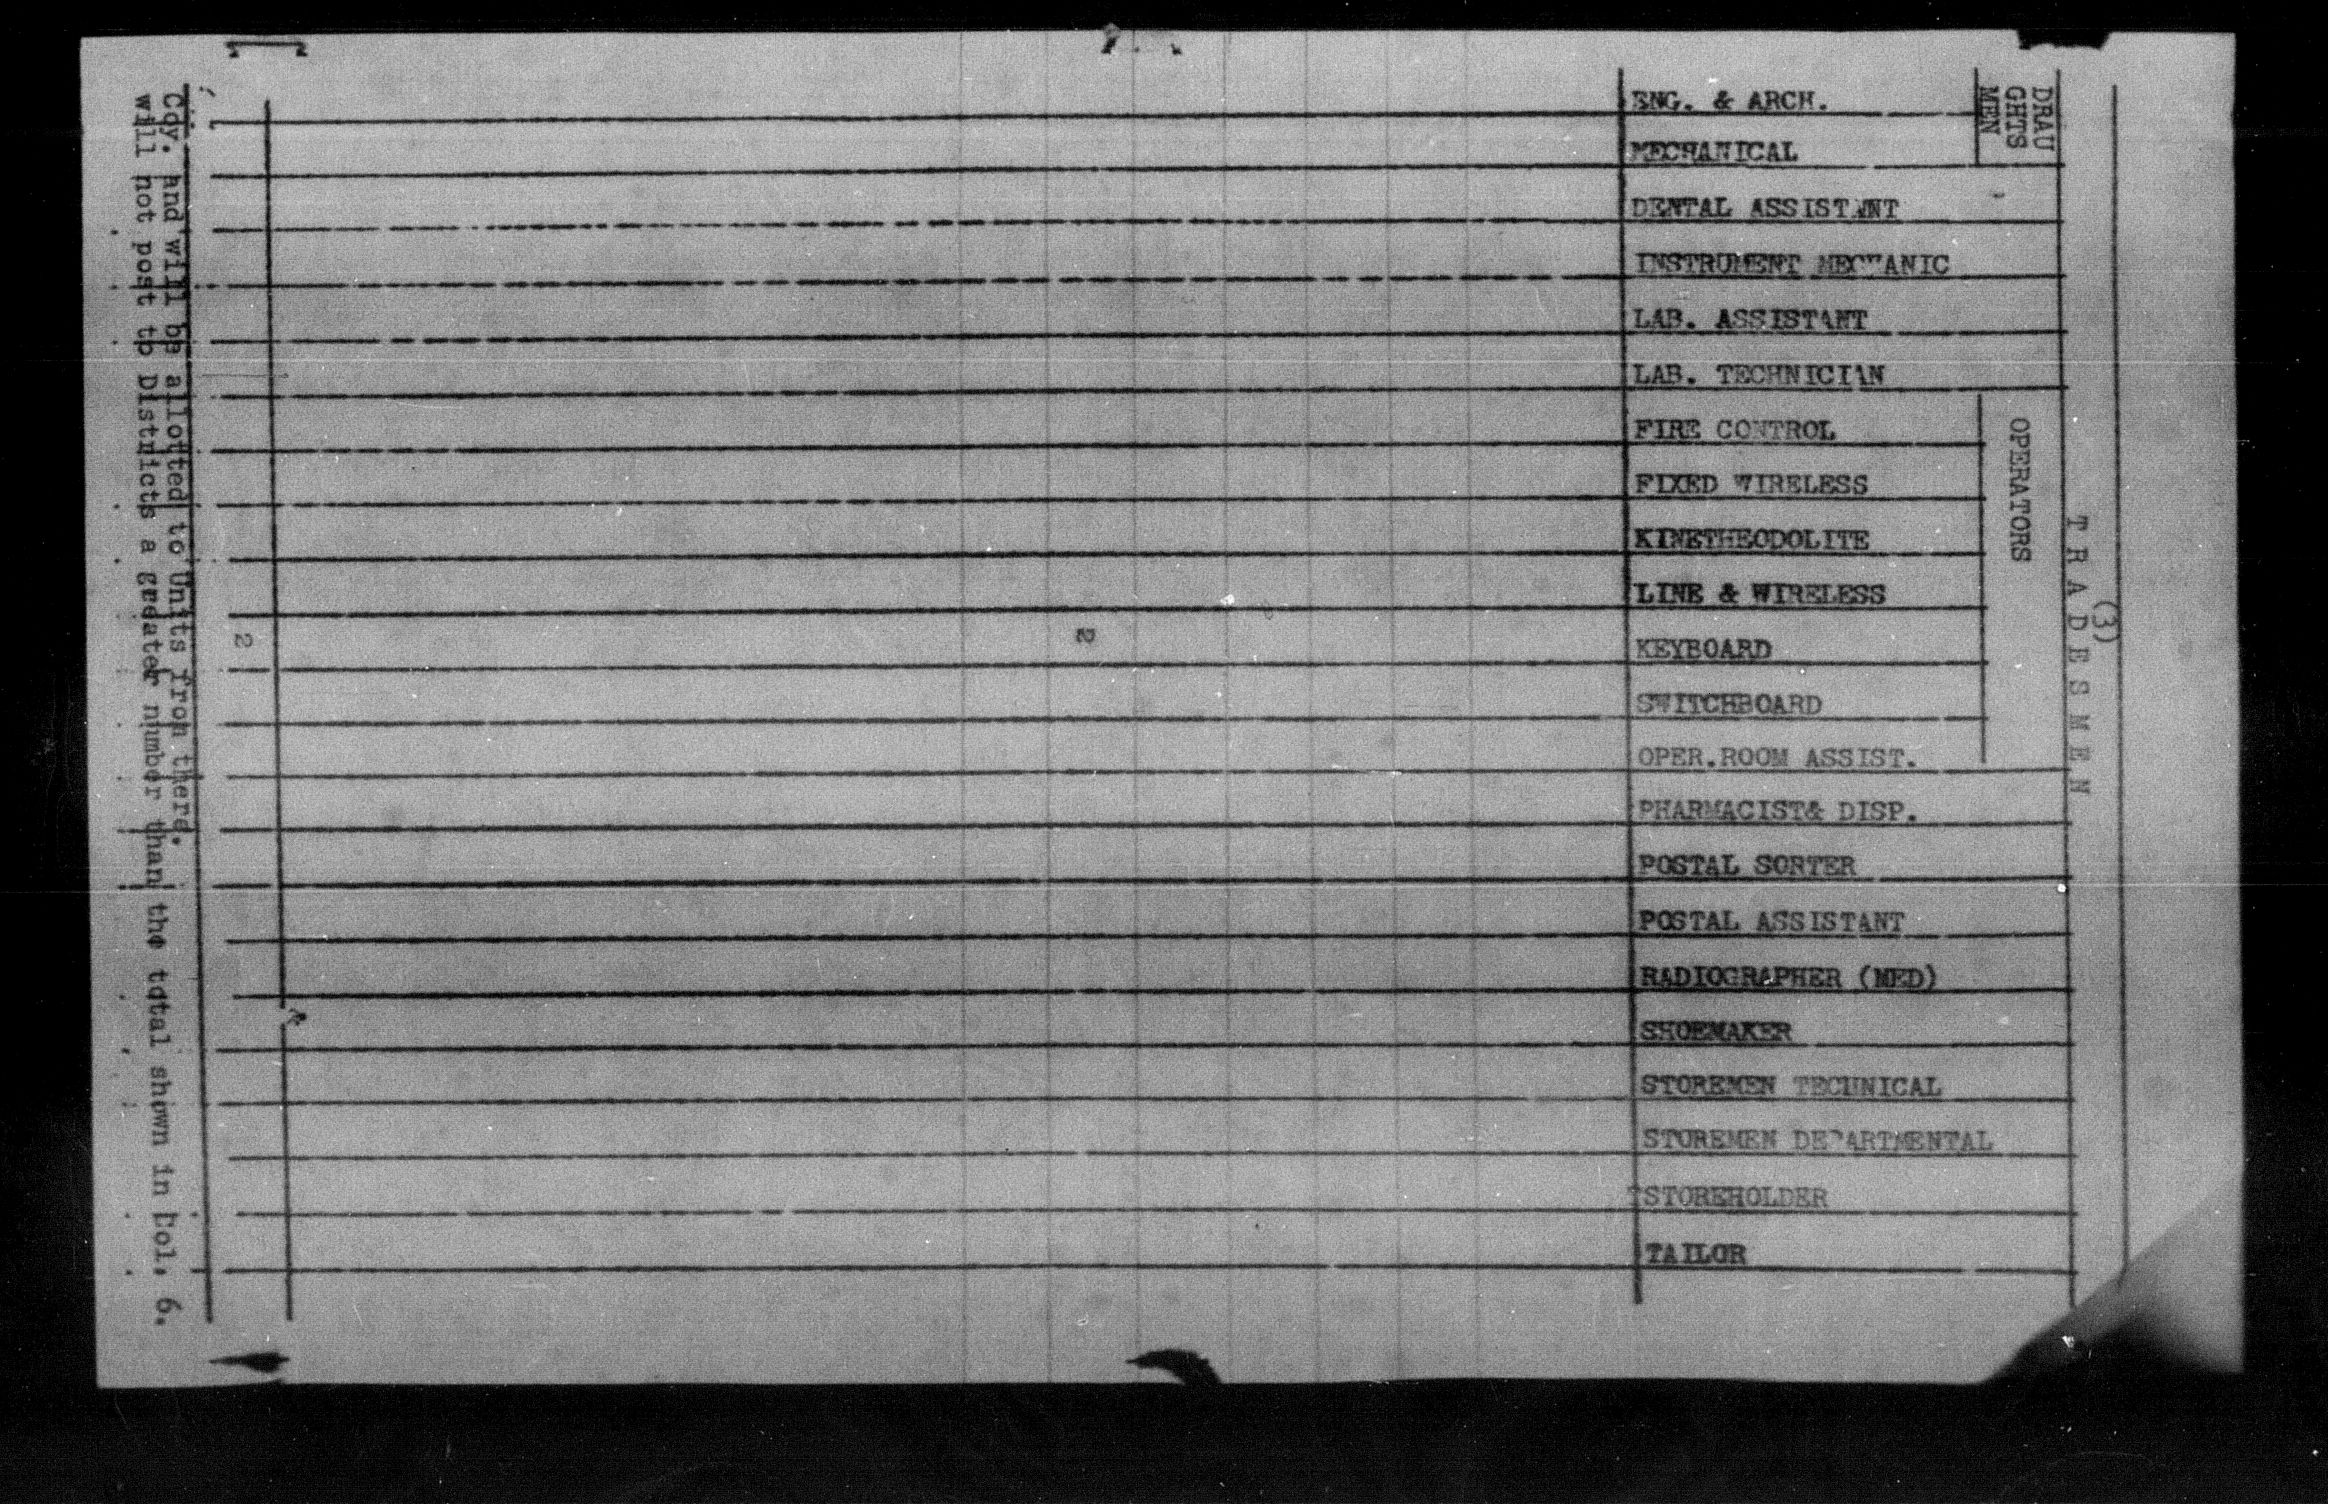 (3)
TRADESMEN
DRAU
GHTS
MEN
ENG. & ARCH.
MECHANICAL
DENTAL ASSISTANT
INSTRUMENT MECHANIC
LAB. ASSISTANT
LAB. TECHNICIAN
OPERATORS
FIRE CONTROL
FIXED WIRELESS
KINETHEODOLITE
LINE & WIRELESS
KEYBOARD 2 2
SWITCHBOARD
OPER.ROOM ASSIST.
PHARMACIST& DISP.
POSTAL SORTER
POSTAL ASSISTANT
RADIOGRAPHER (MED)
SHOEMAKER
STOREMEN TECHNICAL
STOREMEN DEPARTMENTAL
STOREHOLDER
TAILOR
Coy. and will be allotted to Units from there.
will not post to Districts a greater number than the total shown in Col. 6.